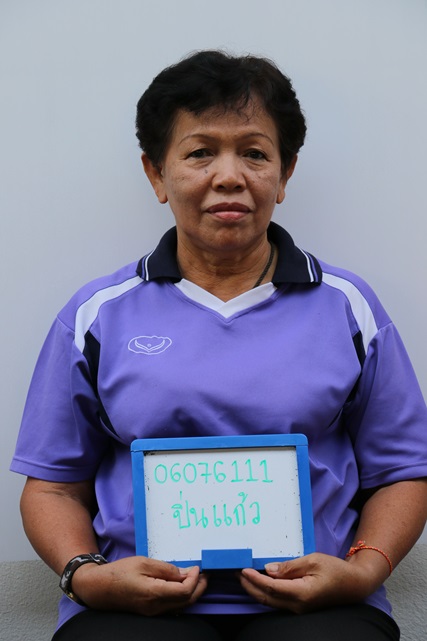 06076111
ปิ่นแก้ว